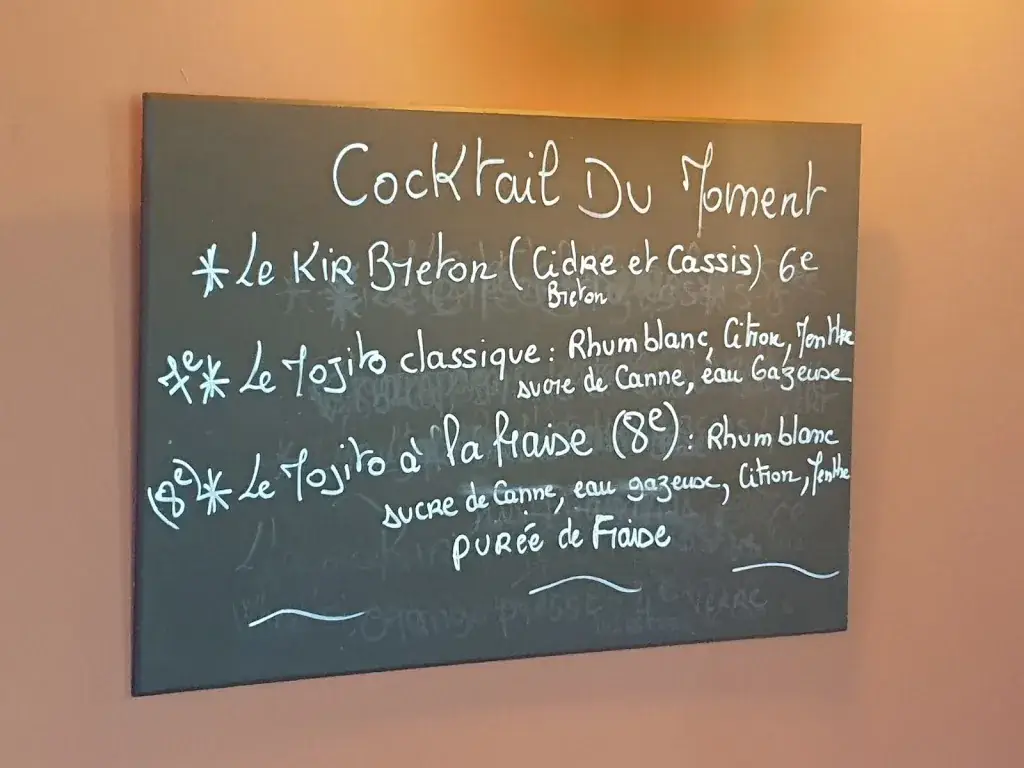 Cocktail Du Moment
* Le Kir Breton (Cidre et Cassis) 6e
Breton
7e * Le Mojito classique : Rhum blanc, Citron, Menthe
sucre de Canne, eau Gazeuse
(8e) * Le Mojito à la fraise (8e) : Rhum blanc
sucre de Canne, eau gazeuse, Citron, Menthe
purée de Fraise